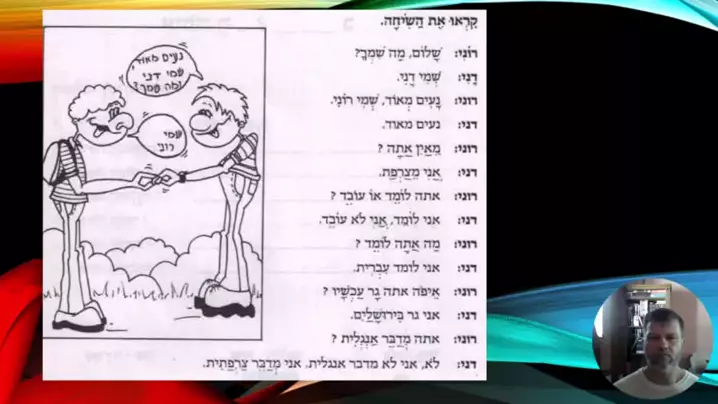 קִרְאוּ אֶת הַשִּׂיחָה.
נעים מאוד,
שמי דני
ומה שמך?
שמי
רוני
רוֹנִי: שָׁלוֹם, מַה שִּׁמְךָ?
דָנִי: שְׁמִי דָנִי.
רוני: נָעִים מְאוֹד, שְׁמִי רוֹנִי.
דני: נעים מאוד.
רוני: מֵאַיִן אַתָּה ?
דני: אֲנִי מִצָּרְפַת.
רוני: אתה לוֹמֵד אוֹ עוֹבֵד ?
דני: אני לוֹמֵד, אֲנִי לֹא עוֹבֵד.
רוני: מָה אַתָּה לוֹמֵד ?
דני: אני לומד עִבְרִית.
רוני: אֵיפֹה אתה גָר עַכְשָׁיו ?
דני: אני גר בִּירוּשָׁלַיִם.
רוני: אתה מְדַבֵּר אַנְגְלִית ?
דני: לֹא, אני לא מדבר אנגלית. אני מְדַבֵּר צָרְפַתִית.